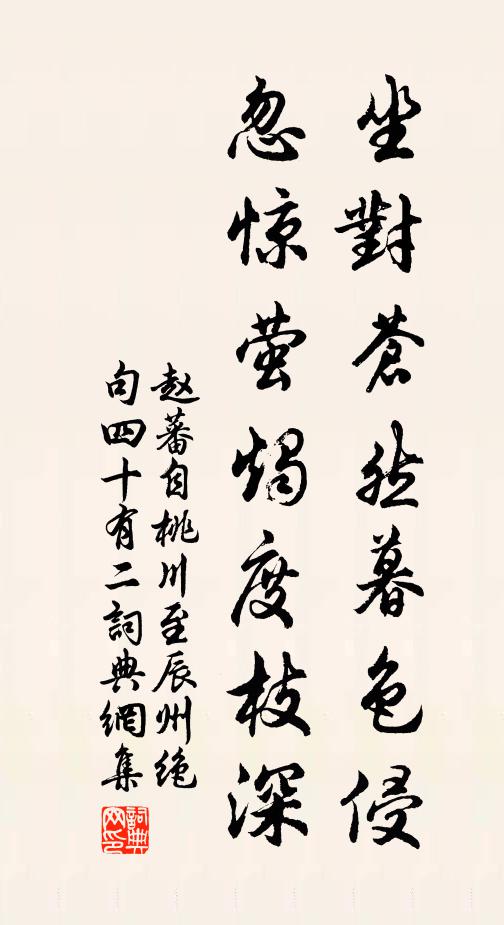 坐對蒼然暮色侵
忽惊萤燭度枝深
赵蕃自桃川至辰州绝
句四十有二詞典網集
詞典
网印